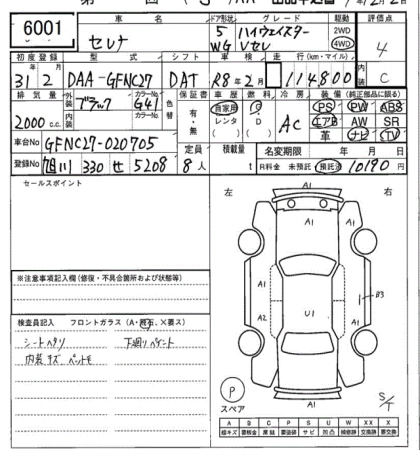 6001
車名 ドア形状 グレード 駆動 評価点
セレナ 5 WG ハイウェイスター Vセレ 2WD 4WD 4
初度登録 型式 シフト 車検 走行(km・マイル) 内装
31年2月 DAA-GFNC27 DAT R8年2月 114800 C
排気量 外装 カラーNo. 色替 保証書 車歴 燃料 冷房 装備(純正部品に限る)
2000c.c. ブラック G41 有・無 自家用 レンタ G D AC PS PW ABS
内装 カラーNo. エアB SR
革 ナビ TV
車台No GFNC27-020705 定員 積載量 名変期限 年 月 日
登録No 旭川 330 せ 5208 8人 t R料金 未預託 預託済 10190円
セールスポイント
左 右
A1
A1 A1
A1 A1
A2 U1 B3
A1 A1
A1
※注意事項記入欄(修復・不具合箇所および状態等)
検査員記入 フロントガラス(A・飛石、×要ス)
シートヘタリ 下廻りペイント
内装キズ
P
スペア
S/T
A B D C P S U W X XX X
線キズ 要板金 腐蝕 要塗装 サビ 凹凸 補修跡 交換跡 要交換